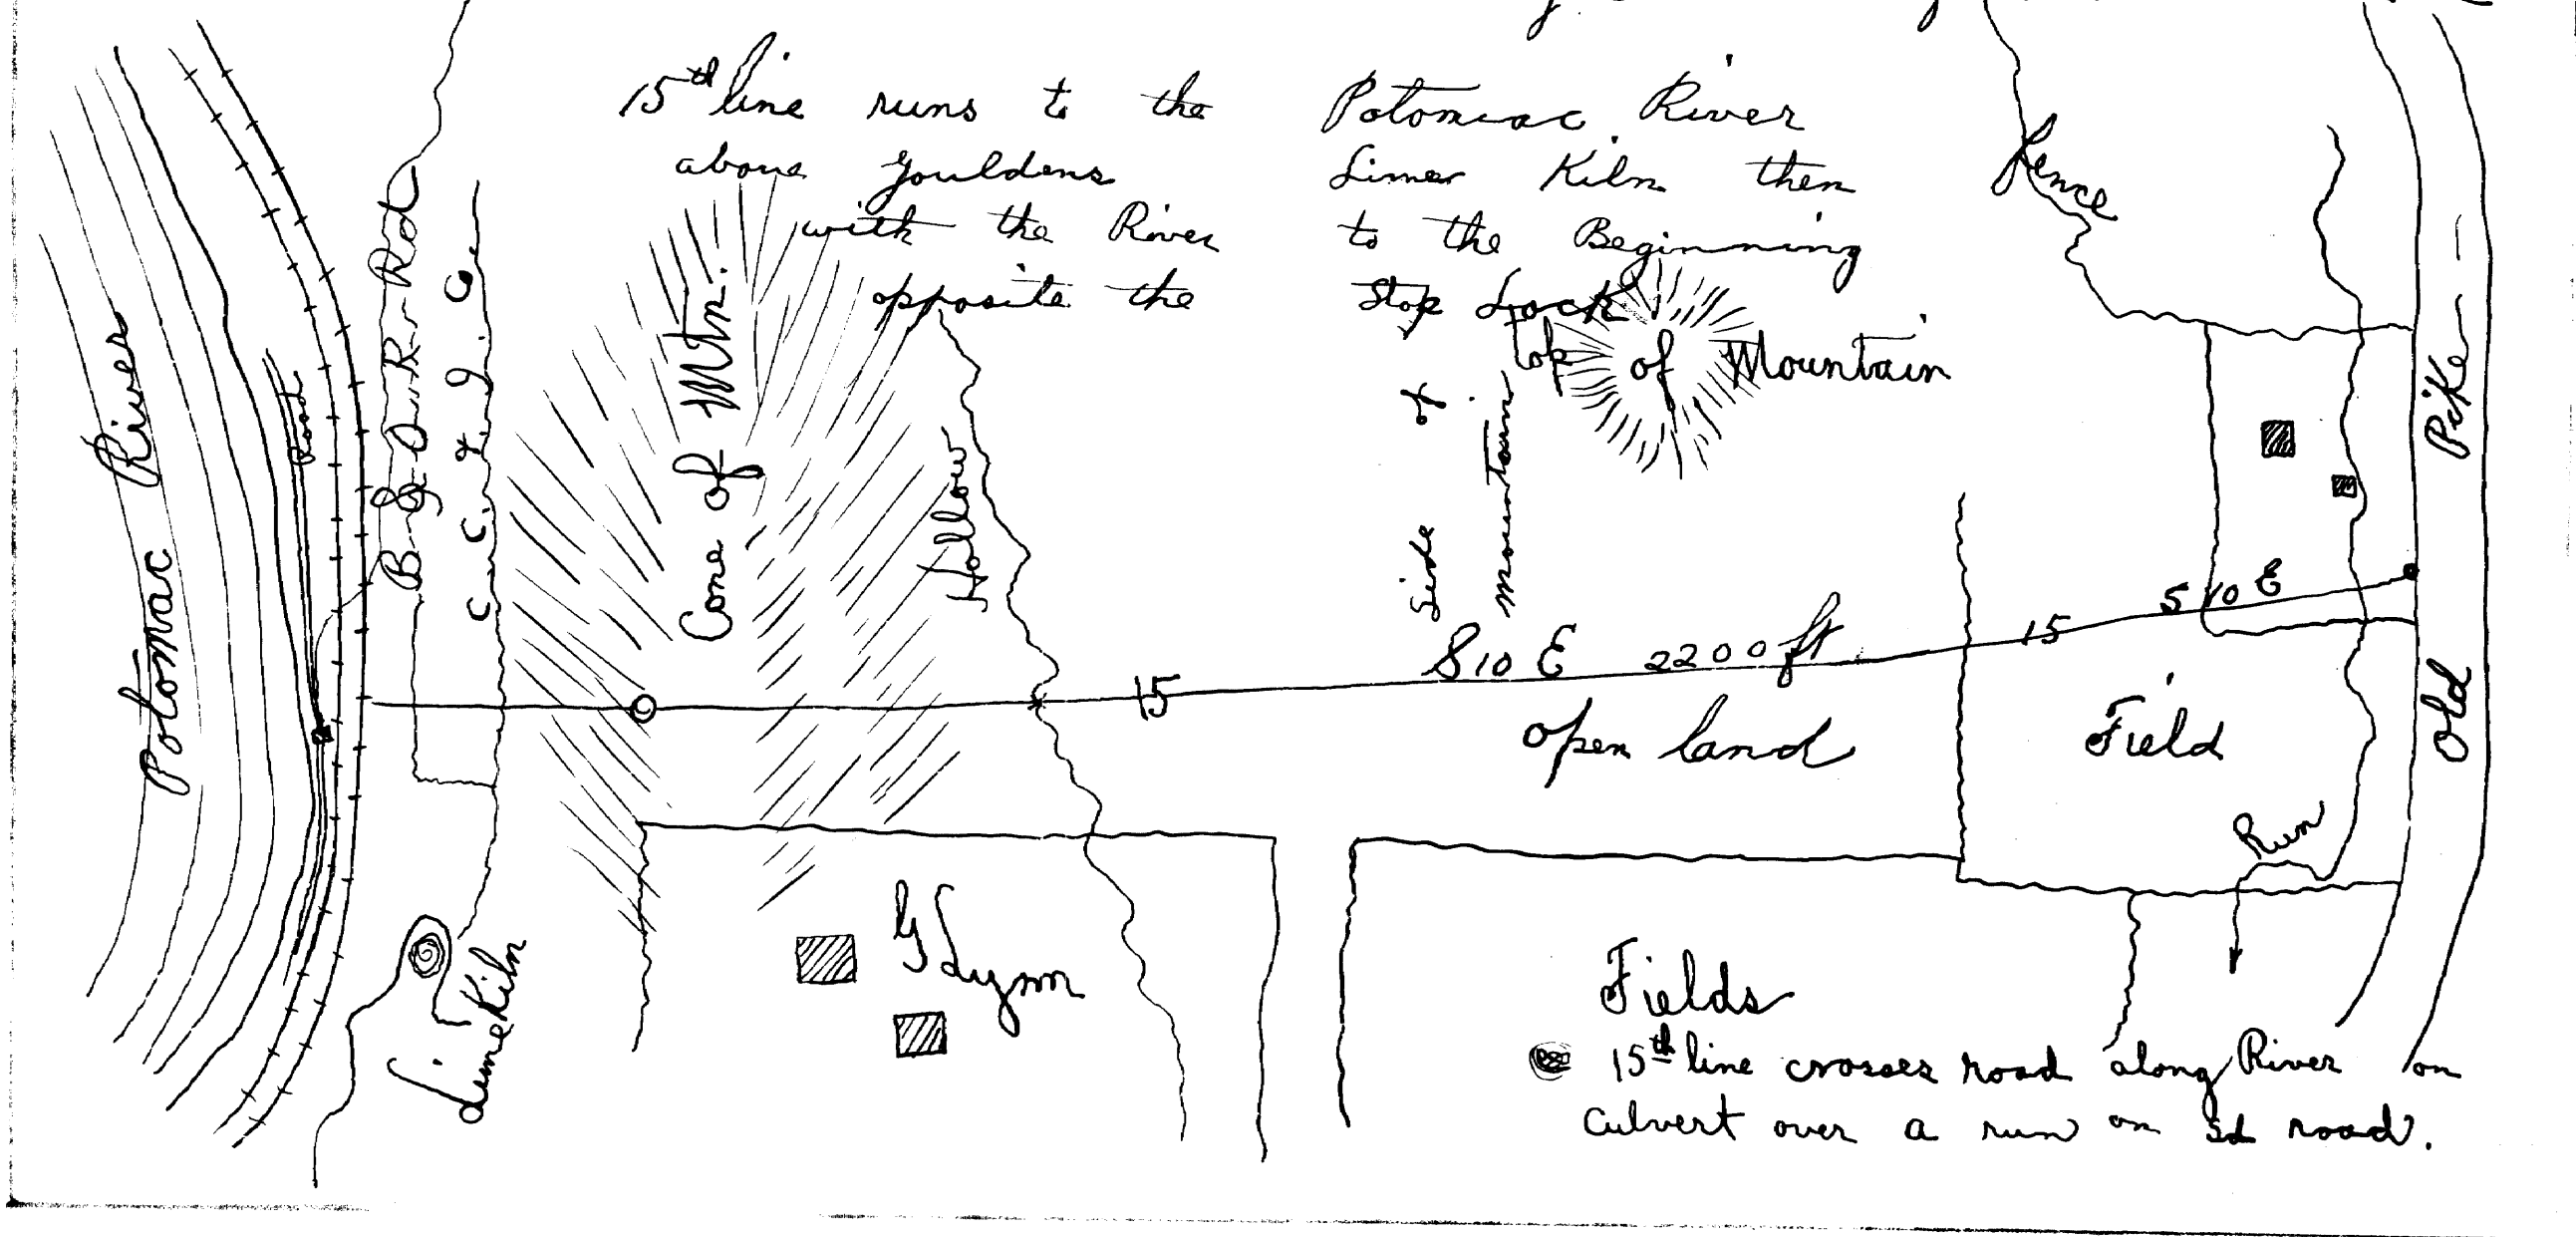 15th line runs to the Potomac River
above Gouldens Lime Kiln then
with the River to the Beginning
opposite the Stop Lock
Top of Mountain
fence
Potomac River
Road
B & O R R Rd
C. C. & I. Co
Cone of Mtn.
Hollow
Side of
mountain
Pike
Old
S 10 E
15
S 10 E 2200 ft
15
open land
Field
Run
G Lynn
Lime Kiln
Fields
15th line crosses road along River on
Culvert over a run on sd road.